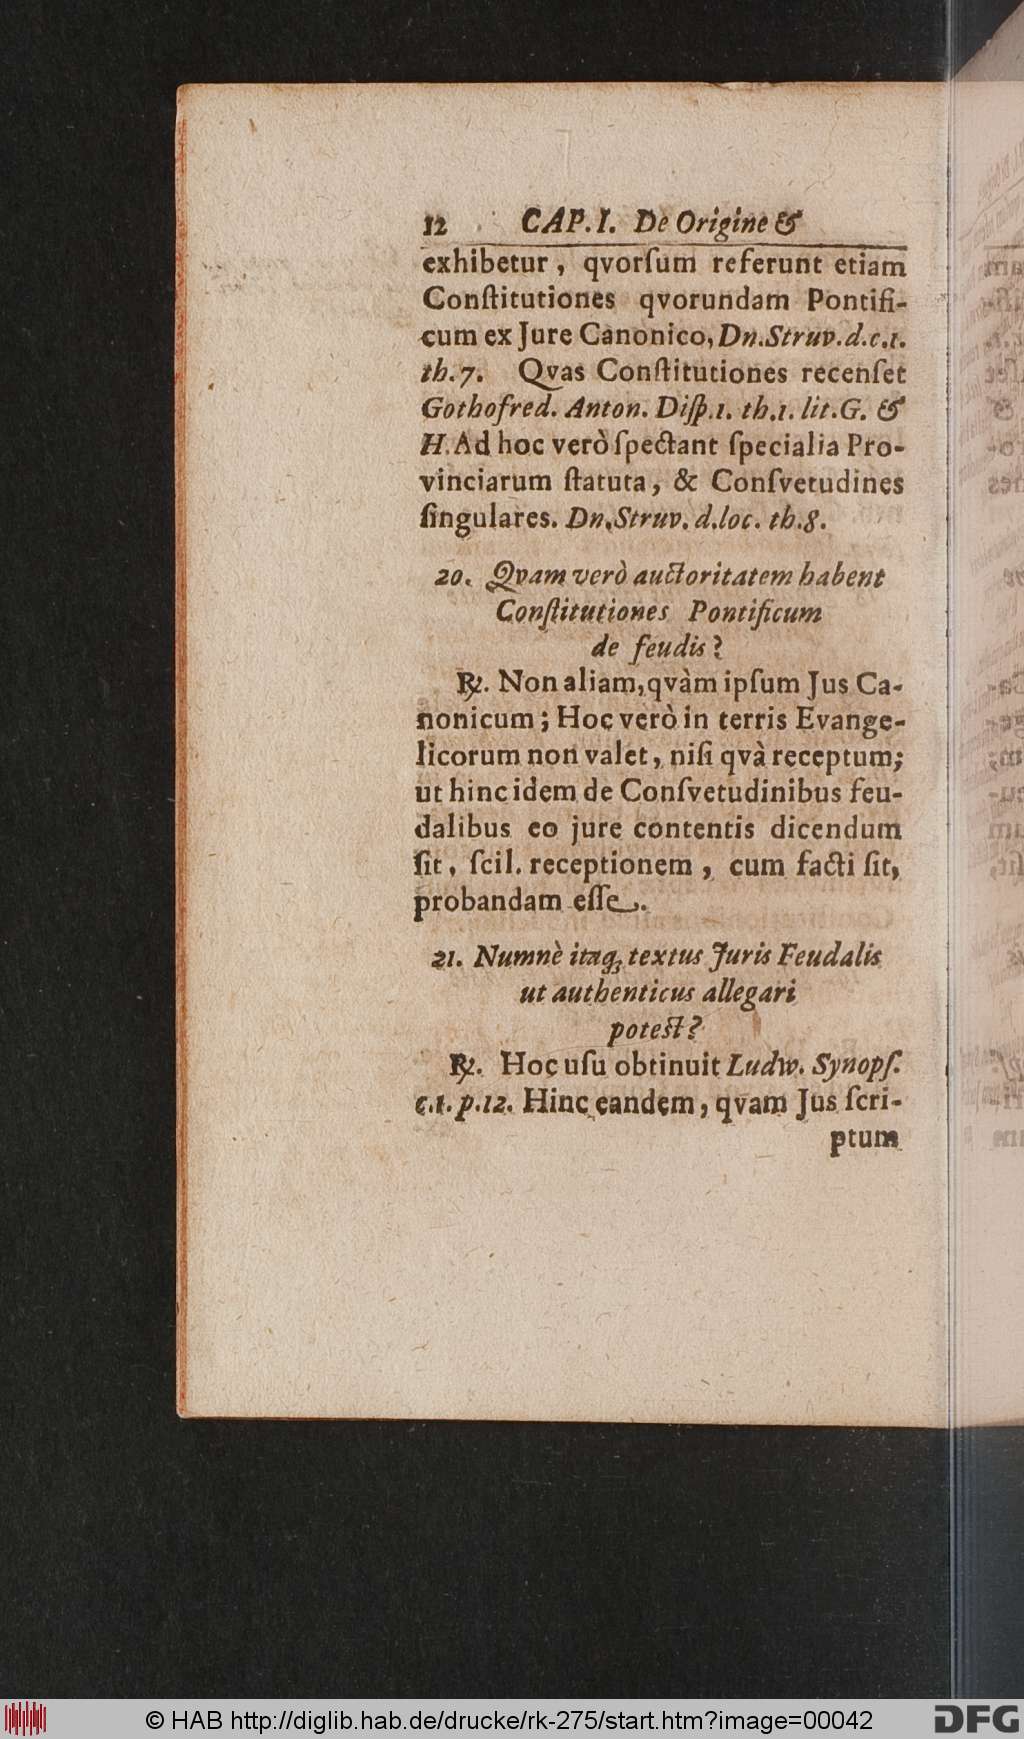 12 CAP. I. De Origine &
exhibetur, qvorſum referunt etiam
Conſtitutiones qvorundam Pontifi-
cum ex Jure Canonico, Dn. Struv. d. c. 1.
th. 7. Qvas Conſtitutiones recenſet
Gothofred. Anton. Diſp. 1. th. 1. lit. G. &
H. Ad hoc verò ſpectant ſpecialia Pro-
vinciarum ſtatuta, & Conſvetudines
ſingulares. Dn. Struv. d. loc. th. 8.
20. Qvam verò auctoritatem habent
Conſtitutiones Pontificum
de feudis?
℞. Non aliam, qvàm ipſum Jus Ca-
nonicum; Hoc verò in terris Evange-
licorum non valet, niſi qvà receptum;
ut hinc idem de Conſvetudinibus feu-
dalibus eo jure contentis dicendum
ſit, ſcil. receptionem, cum facti ſit,
probandam eſſe.
21. Numnè itaq; textus Juris Feudalis
ut authenticus allegari
potest?
℞. Hoc uſu obtinuit Ludw. Synopſ.
c. 1. p. 12. Hinc eandem, qvam Jus ſcri-
ptum
© HAB http://diglib.hab.de/drucke/rk-275/start.htm?image=00042
DFG